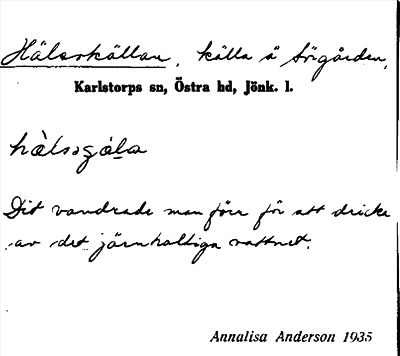 Hälsokällan, källa å Sörgården,
Karlstorps sn, Östra hd, Jönk. l.
hälsogála
Dit vandrade man förr för att dricka
av det järnhaltiga vattnet.
Annalisa Anderson 1935